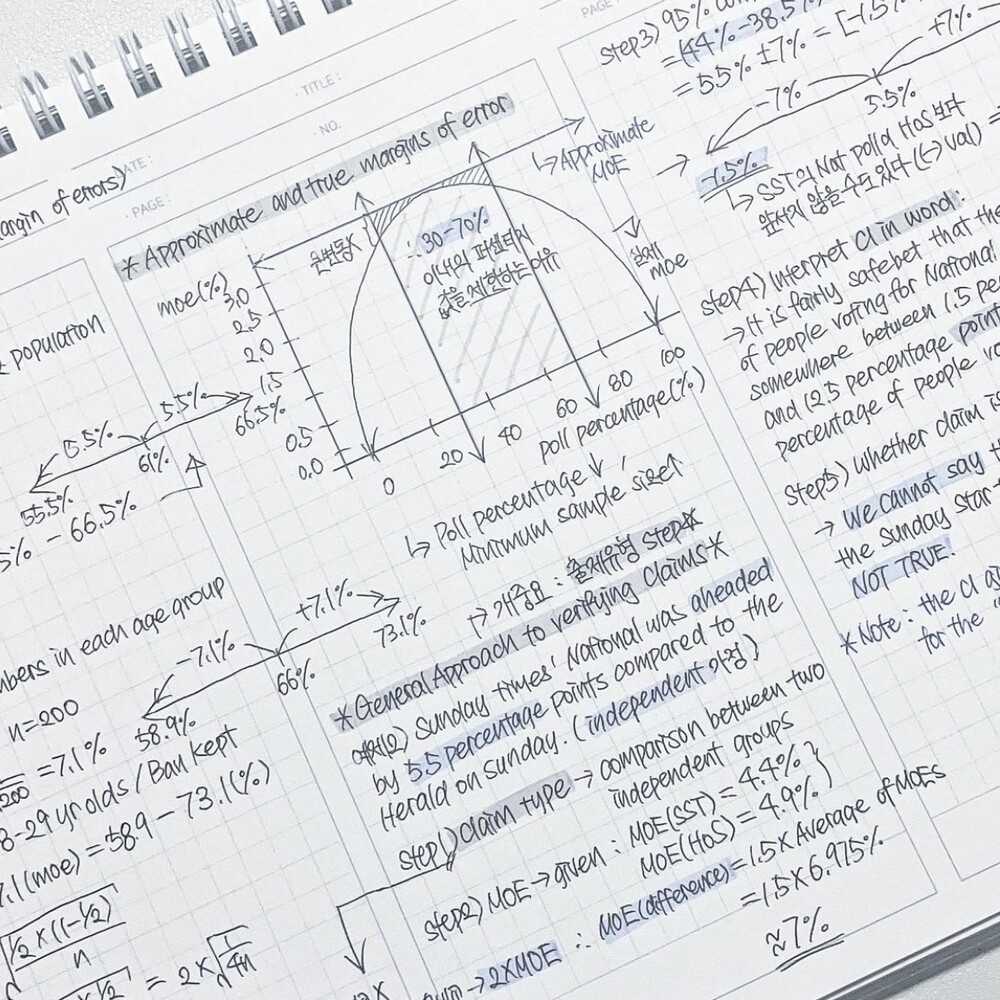 TITLE :
NO.
PAGE :
argin of errors)
ATE :
PAGE :
population
5.5%
5.5%
61%
66.5%
55.5%
5% - 66.5%
mbers in each age group
n=200
200
=7.1%
8-29 yr olds / Ban kept
7.1(moe) = 58.9 - 73.1(%)
1/2 × (1-1/2)
n
= 2×√
1
4n
+7.1%
73.1%
-7.1%
66%
58.9%
* Approximate and true margins of error
moe(%)
3.0
2.5
2.0
1.5
0.5
0.0
0
20
40
60
80
100
Poll percentage(%)
∴ 30-70%
이내의 퍼센티지
값을 제한하는 이유
↳ Approximate
MOE
실제
moe
↳ Poll percentage ↓,
Minimum sample size↑
개중요 : 출제유형 step*
* General Approach to verifying claims *
Sunday times' National was aheaded
by 5.5 percentage points compared to the
Herald on sunday. (independent 가정)
step1) claim type → comparison between two
independent groups
step2) MOE → given : MOE(SST) = 4.4%
MOE(HOS) = 4.9%
∴ MOE(difference) = 1.5 × Average of MOEs
= 1.5 × 6.975%
≈ 7%
→ 2×MOE
step3) 95%
= (44% - 38.5%
= 5.5% ± 7% = [-1.5%
-7%
+7%
5.5%
→ -1.5%
↳ SST의 Not poll이 HoS 보다
앞서지 않을 수도 있다 (← (-) val)
step4) Interpret CI in word:
→ It is fairly safe bet that the
of people voting for National
somewhere between 1.5 per
and 12.5 percentage point
percentage of people vo
step5) whether claim is
→ we cannot say th
the sunday star-
NOT TRUE.
* Note : the CI a
for the "